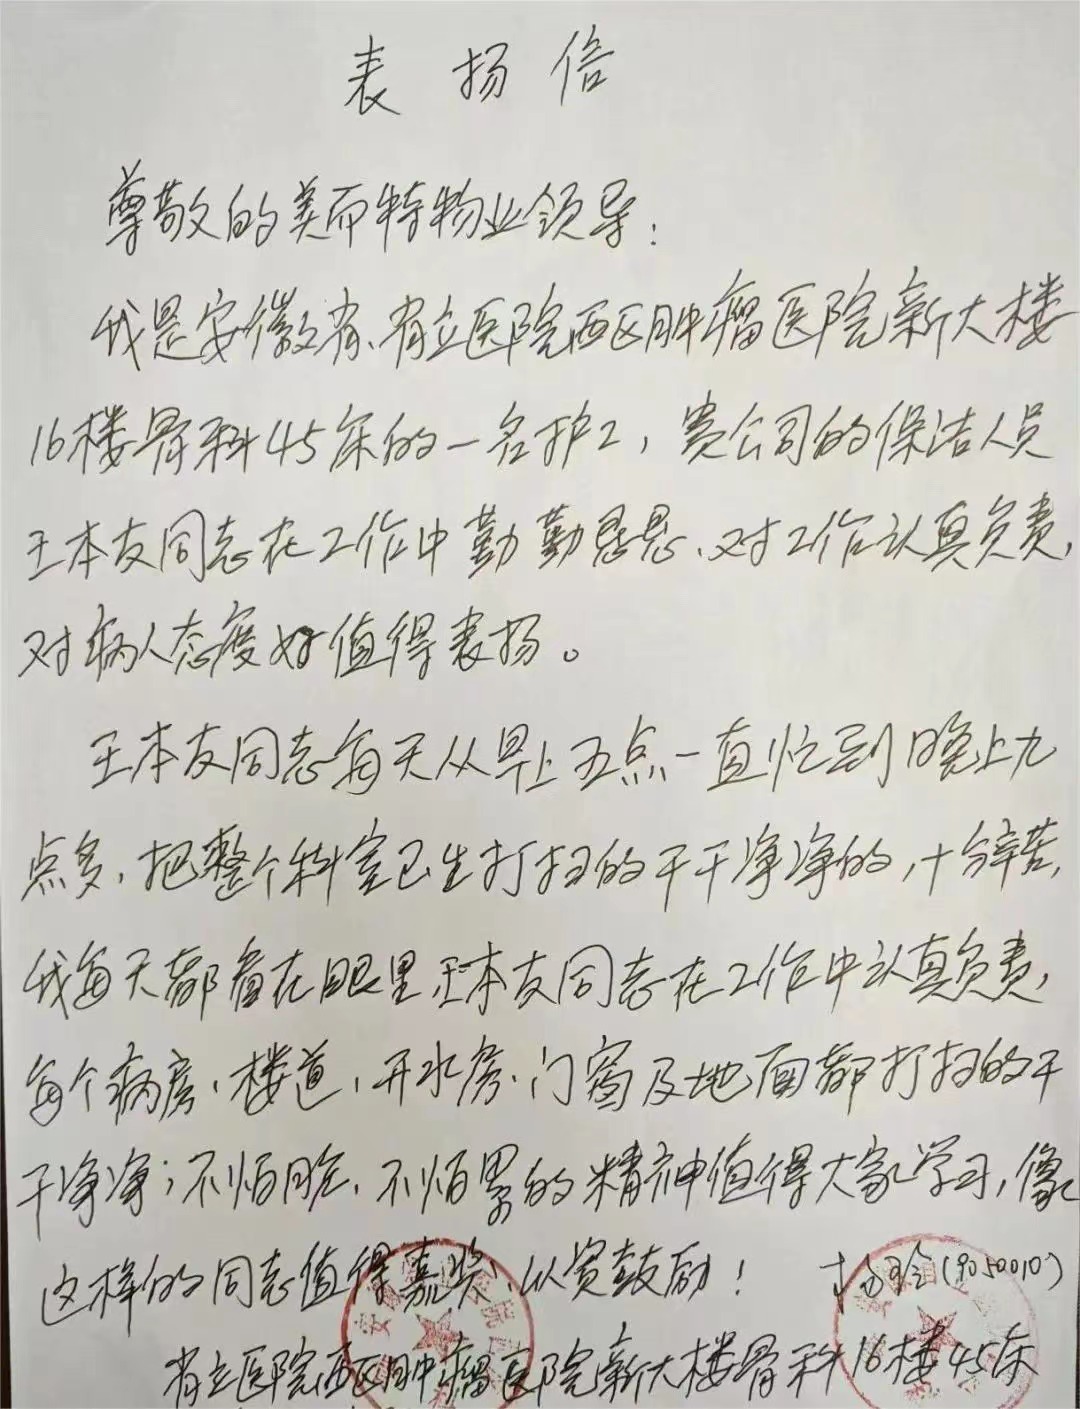 表扬信
尊敬的美而特物业领导：
我是安徽省、省立医院西区肿瘤医院新大楼
16楼骨科45床的一名护工，贵公司的保洁人员
王本友同志在工作中勤勤恳恳、对工作认真负责，
对病人态度好值得表扬。
王本友同志每天从早上五点一直忙到晚上九
点多，把整个科室卫生打扫的干干净净的，十分辛苦，
我每天都看在眼里，王本友同志在工作中认真负责，
每个病房、楼道，开水房、门窗及地面都打扫的干
干净净；不怕脏、不怕累的精神值得大家学习，像
这样的同志值得嘉奖，以资鼓励！
(9050010)
省立医院西区肿瘤医院新大楼骨科16楼45床